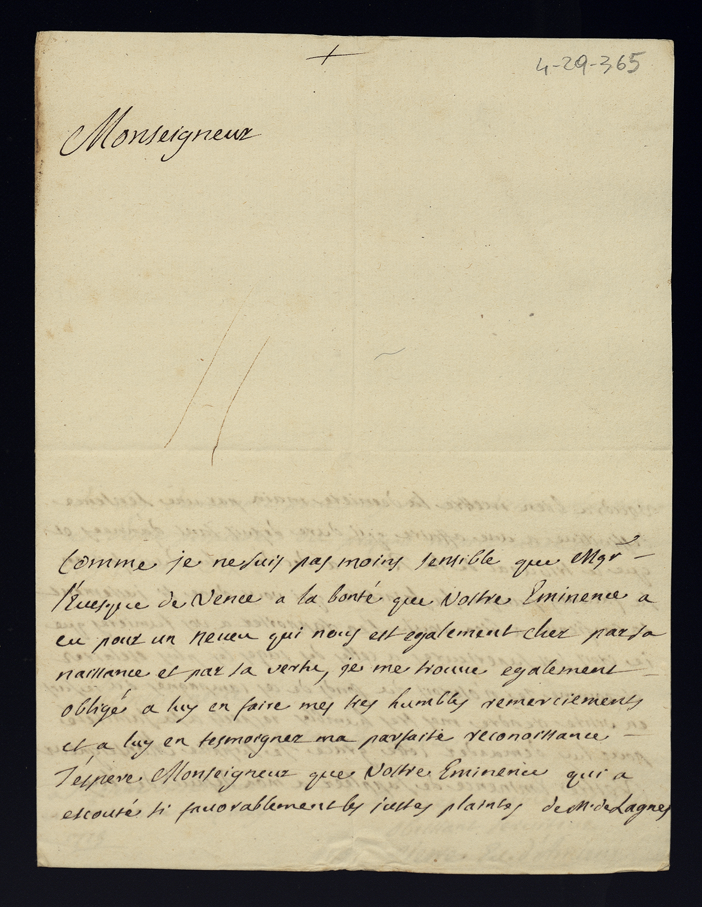 4-29-365
Monseigneur
Comme je ne suis pas moins sensible que Mgr
l'Euesque de Vence a la bonté que Vostre Eminence a
eu pour un neueu qui nous est egalement cher par sa
naissance et par sa vertu, je me trouue egalement
obligé a luy en faire mes tres humbles remerciements
et a luy en tesmoigner ma parfaite reconoissance
J'espere Monseigneur que Vostre Eminence qui a
escouté si favorablement les justes plaintes de Mr. de Lagnes